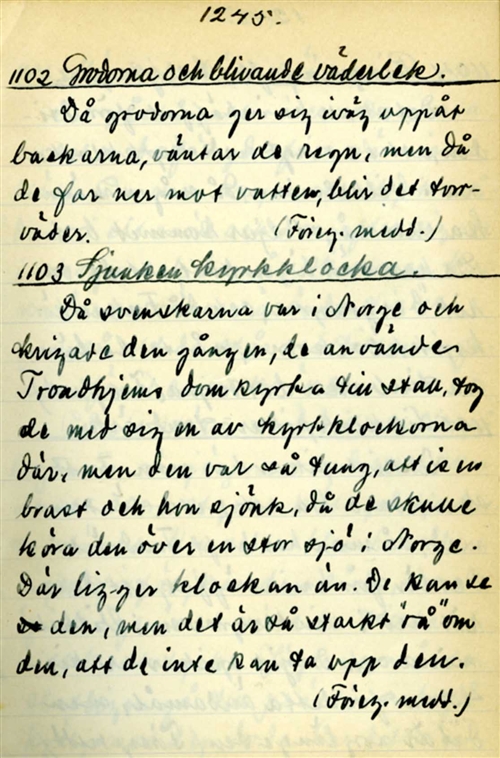 1245.
1102 Grodorna och blivande väderlek.
Då grodorna ger sig iväg uppåt
backarna, väntar de regn, men då
de far ner mot vatten, blir det torr-
väder. (Föreg. medd.)
1103 Sjunken kyrkklocka.
Då svenskarna var i Norge och
krigade den gången, de använde
Trondhjems domkyrka till stall, tog
de med sig en av kyrkklockorna
där, men den var så tung, att isen
brast och hon sjönk, då de skulle
köra den över en stor sjö i Norge.
Där ligger klockan än. De kan se
den, men det är så starkt "rå" om
den, att de inte kan ta upp den.
(Föreg. medd.)